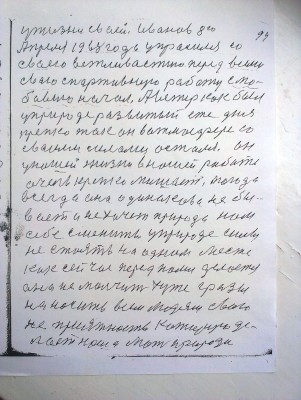 94
у жизни своей. Иванов 8го
Апреля 1963 году украсился со
своею вежливостию перед всеми
свою спортивную работу с но-
бового начал. А ветер как был
у природе развитый ещё дня
так он в атмосфере со
своими силами остался. он
у нашей жизни в нашей работе
очень крепко мешает, погода
всегда она одинакова не бы-
вает и не хочет природа нам
себе сменить у природе силы
не стоять на одном месте
как сейчас перед нами делает
она не молчит хуже сразу
наносить всем людям свою
не приятность которую де-
лает наша мать природа